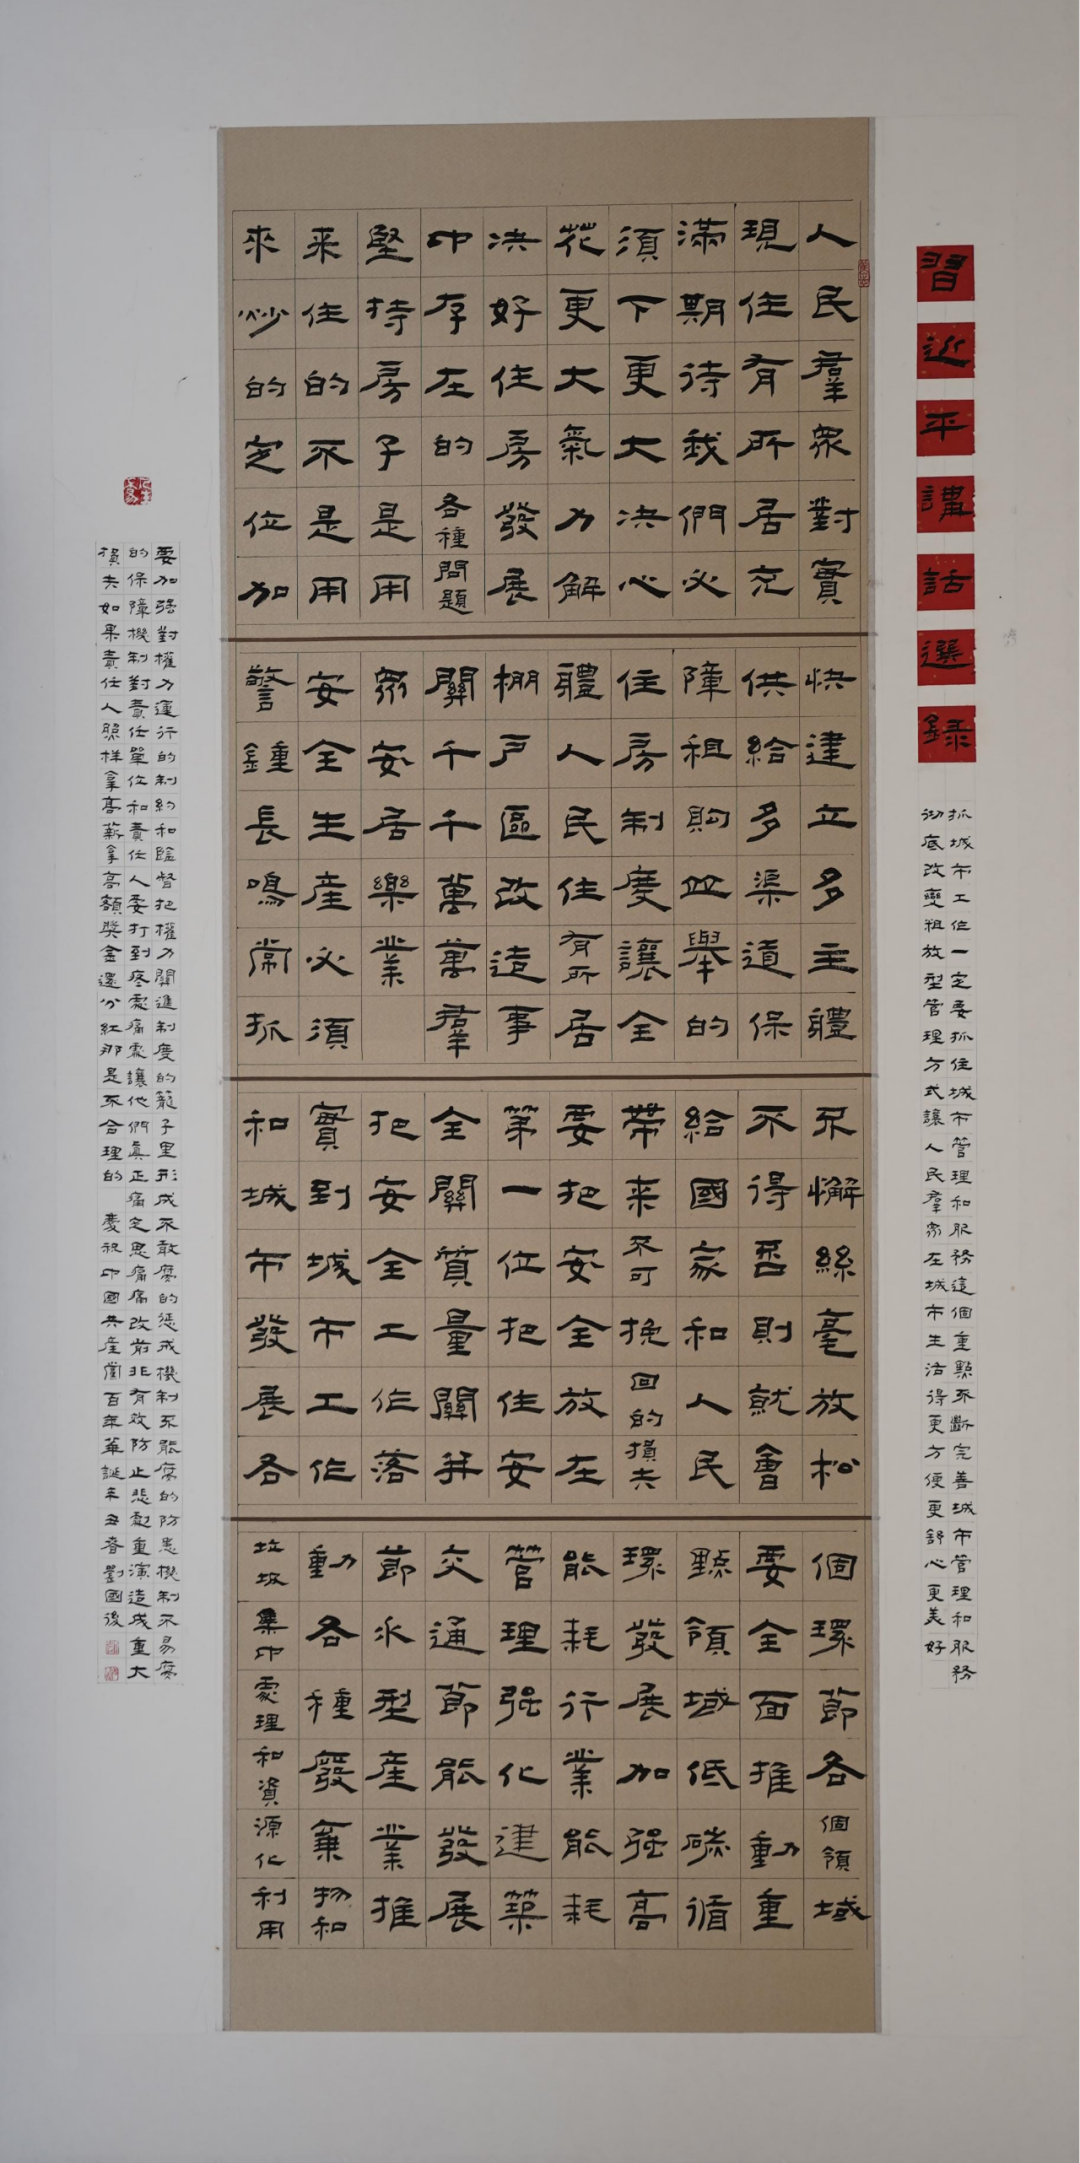 習近平講話選録
抓城市工作一定要抓住城市管理和服務這個重點不斷完善城市管理和服務
彻底改變粗放型管理方式讓人民羣眾在城市生活得更方便更舒心更美好
人民羣眾對實
現住有所居充
滿期待我們必
須下更大決心
花更大氣力解
決好住房發展
中存在的各種問題
堅持房子是用
来住的不是用
來炒的定位加
快建立多主體
供給多渠道保
障租購並舉的
住房制度讓全
體人民住有所居
棚戶區改造事
關千千萬萬羣
眾安居樂業
安全生產必須
警鍾長鳴常抓
不懈絲毫放松
不得否則就會
給國家和人民
帶来不可挽回的損失
要把安全放在
第一位把住安
全關質量關并
把安全工作落
實到城市工作
和城市發展各
個環節各個領域
要全面推動重
點領域低碳循
環發展加强高
能耗行業能耗
管理强化建築
交通節能發展
節水型產業推
動各種廢棄物和
垃圾集中處理和資源化利用
要加强對權力運行的制約和監督把權力關進制度的籠子里形成不敢腐的懲戒機制不能腐的防患機制不易腐
的保障機制對責任單位和責任人要打到疼處痛處讓他們真正痛定思痛痛改前非有效防止悲劇重演造成重大
損失如果責任人照样拿高薪拿高額奬金還分紅那是不合理的 慶祝中國共產黨百年華誕辛丑春劉國後